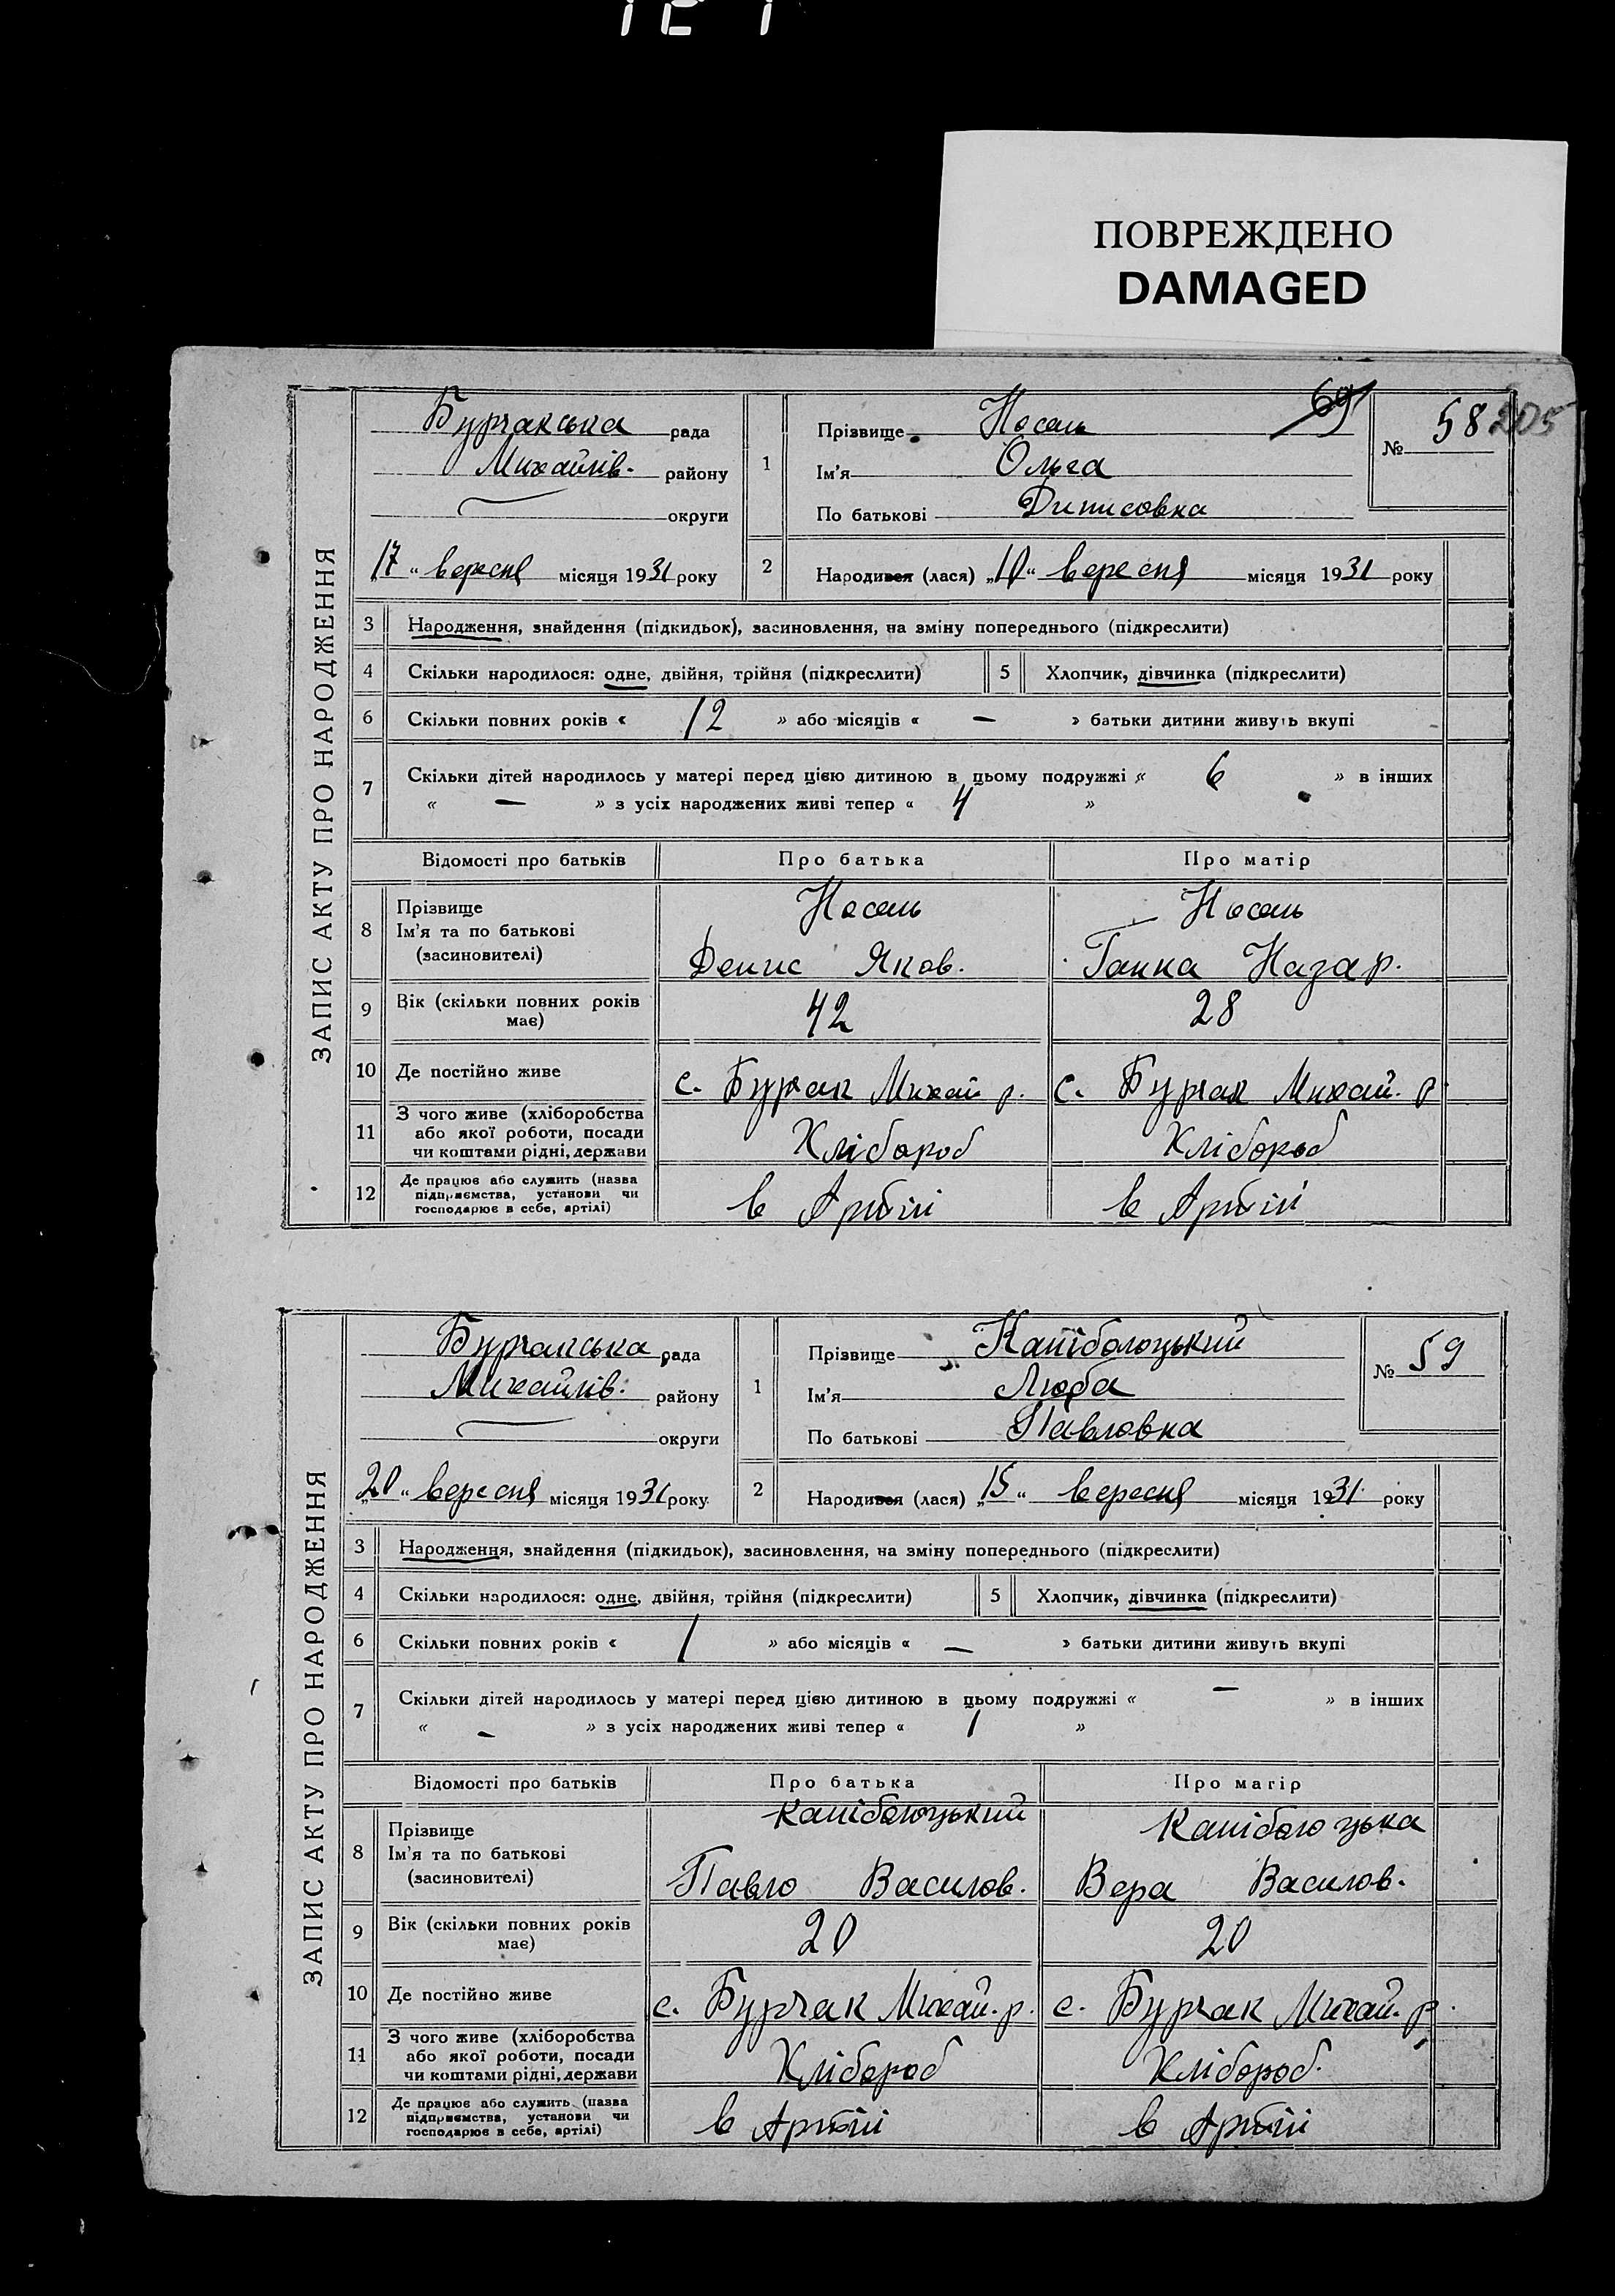 ПОВРЕЖДЕНО
DAMAGED
ЗАПИС АКТУ ПРО НАРОДЖЕННЯ
Бурчакська рада
Михайлів. району
округи
17 " вересня місяця 1931 року
1
Прізвище Носаль
Ім'я Ольга
По батькові Динисовка
69
№ 58
205
2 Народився (лася) „10" вересня місяця 1931 року
3 Народження, знайдення (підкидьок), засиновлення, на зміну попереднього (підкреслити)
4 Скільки народилося: одне, двійня, трійня (підкреслити) 5 Хлопчик, дівчинка (підкреслити)
6 Скільки повних років « 12 » або місяців « — » батьки дитини живуть вкупі
7 Скільки дітей народилось у матері перед цією дитиною в цьому подружжі « 6 » в інших
« — » з усіх народжених живі тепер « 4 »
Відомості про батьків Про батька Про матір
8 Прізвище
Ім'я та по батькові
(засиновителі)
Носаль
Денис Яков.
Носаль
Ганна Назар.
9 Вік (скільки повних років має) 42 28
10 Де постійно живе с. Бурчак Михай р. с. Бурчак Михай. р
11 З чого живе (хліборобства
або якої роботи, посади
чи коштами рідні, держави
Хлібороб Хлібороб
12 Де працює або служить (назва
підприємства, установи чи
господарює в себе, артілі)
в Артілі в Артілі
ЗАПИС АКТУ ПРО НАРОДЖЕННЯ
Бурчакська рада
Михайлів. району
округи
„20" вересня місяця 1931 року
1
Прізвище Капіболоцький
Ім'я Люба
По батькові Павловка
№ 59
2 Народився (лася) „15" вересня місяця 1931. року
3 Народження, знайдення (підкидьок), засиновлення, на зміну попереднього (підкреслити)
4 Скільки народилося: одне, двійня, трійня (підкреслити) 5 Хлопчик, дівчинка (підкреслити)
6 Скільки повних років « 1 » або місяців « — » батьки дитини живуть вкупі
7 Скільки дітей народилось у матері перед цією дитиною в цьому подружжі « — » в інших
« — » з усіх народжених живі тепер « 1 »
Відомості про батьків Про батька Про матір
8 Прізвище
Ім'я та по батькові
(засиновителі)
Павло Василов.
Вера Василов.
9 Вік (скільки повних років має) 20 20
10 Де постійно живе с. Бурчак Михай. р. с. Бурчак Михай. р.
11 З чого живе (хліборобства
або якої роботи, посади
чи коштами рідні, держави
Хлібороб Хлібороб.
12 Де працює або служить (назва
підприємства, установи чи
господарює в себе, артілі)
в Артілі в Артілі